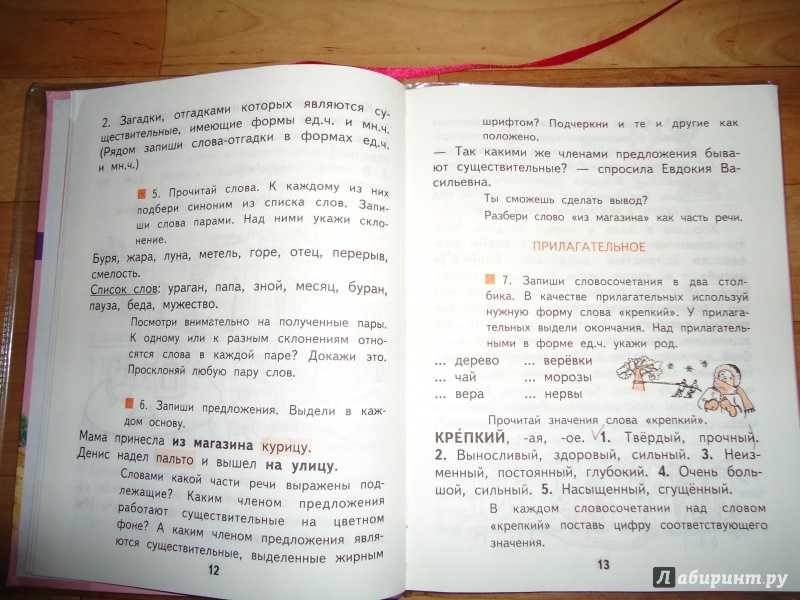 2. Загадки, отгадками которых являются су-
ществительные, имеющие формы ед.ч. и мн.ч.
(Рядом запиши слова-отгадки в формах ед.ч.
и мн.ч.)
5. Прочитай слова. К каждому из них
подбери синоним из списка слов. Запи-
ши слова парами. Над ними укажи скло-
нение.
Буря, жара, луна, метель, горе, отец, перерыв,
смелость.
Список слов: ураган, папа, зной, месяц, буран,
пауза, беда, мужество.
Посмотри внимательно на полученные пары.
К одному или к разным склонениям отно-
сятся слова в каждой паре? Докажи это.
Просклоняй любую пару слов.
6. Запиши предложения. Выдели в каж-
дом основу.
Мама принесла из магазина курицу.
Денис надел пальто и вышел на улицу.
Словами какой части речи выражены под-
лежащие? Каким членом предложения
работают существительные на цветном
фоне? А каким членом предложения явля-
ются существительные, выделенные жирным
12
шрифтом? Подчеркни и те и другие как
положено.
— Так какими же членами предложения быва-
ют существительные? — спросила Евдокия Ва-
сильевна.
Ты сможешь сделать вывод?
Разбери слово «из магазина» как часть речи.
ПРИЛАГАТЕЛЬНОЕ
7. Запиши словосочетания в два стол-
бика. В качестве прилагательных используй
нужную форму слова «крепкий». У прилага-
тельных выдели окончания. Над прилагатель-
ными в форме ед.ч. укажи род.
... дерево ... верёвки
... чай ... морозы
... вера ... нервы
Прочитай значения слова «крепкий».
КРЕ́ПКИЙ, -ая, -ое. 1. Твёрдый, прочный.
2. Выносливый, здоровый, сильный. 3. Неиз-
менный, постоянный, глубокий. 4. Очень боль-
шой, сильный. 5. Насыщенный, сгущённый.
В каждом словосочетании над словом
«крепкий» поставь цифру соответствующего
значения.
13
Лабиринт.ру